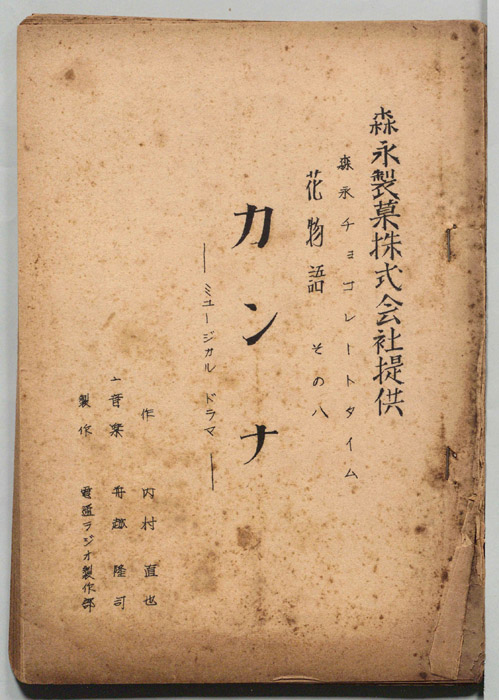 森永製菓株式会社提供
森永チョコレートタイム
花物語 その八
カンナ
―ミュージカル ドラマ―
作 内村直也
音楽 舟越隆司
製作 電通ラジオ製作部